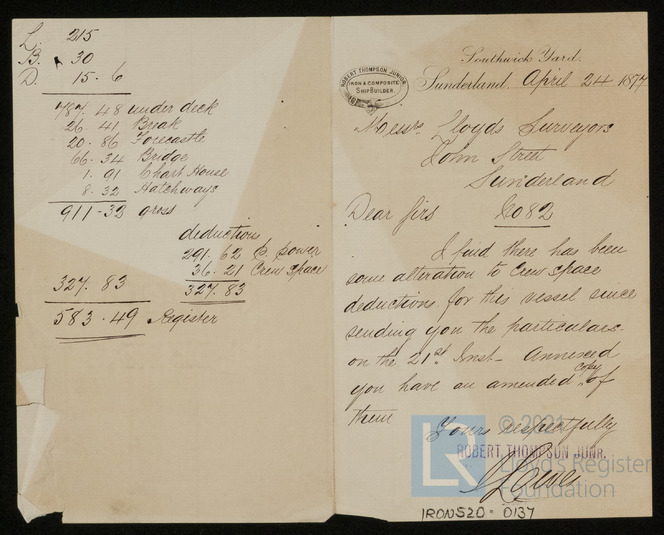 L. 215
B. 30
D. 15.6
787.48 under deck
26.41 Break
20.86 Forecastle
66.34 Bridge
1.91 Chart House
8.32 Hatchways
911-32 gross
deductions
291.62 P. power
36.21 Crew space
327.83 327.83
583.49 Register
Southwick Yard.
ROBERT THOMPSON JUNIOR
IRON & COMPOSITE
SHIPBUILDER
Sunderland. April 24 1877
Messrs Lloyds Surveyors
John Street
Sunderland
Dear Sirs No 82
I find there has been
some alteration to Crew space
deductions for this vessel since
sending you the particulars
on the 21st Inst- Annexed
you have an amended copy of
them
Yours respectfully
ROBERT THOMPSON JUNR.
© 2021
LR Lloyd's Register
Foundation
IRON520-0137